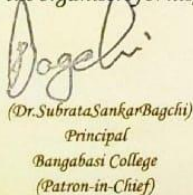 Bagchi
(Dr.SubrataSankarBagchi)
Principal
Bangabasi College
(Patron-in-Chief)